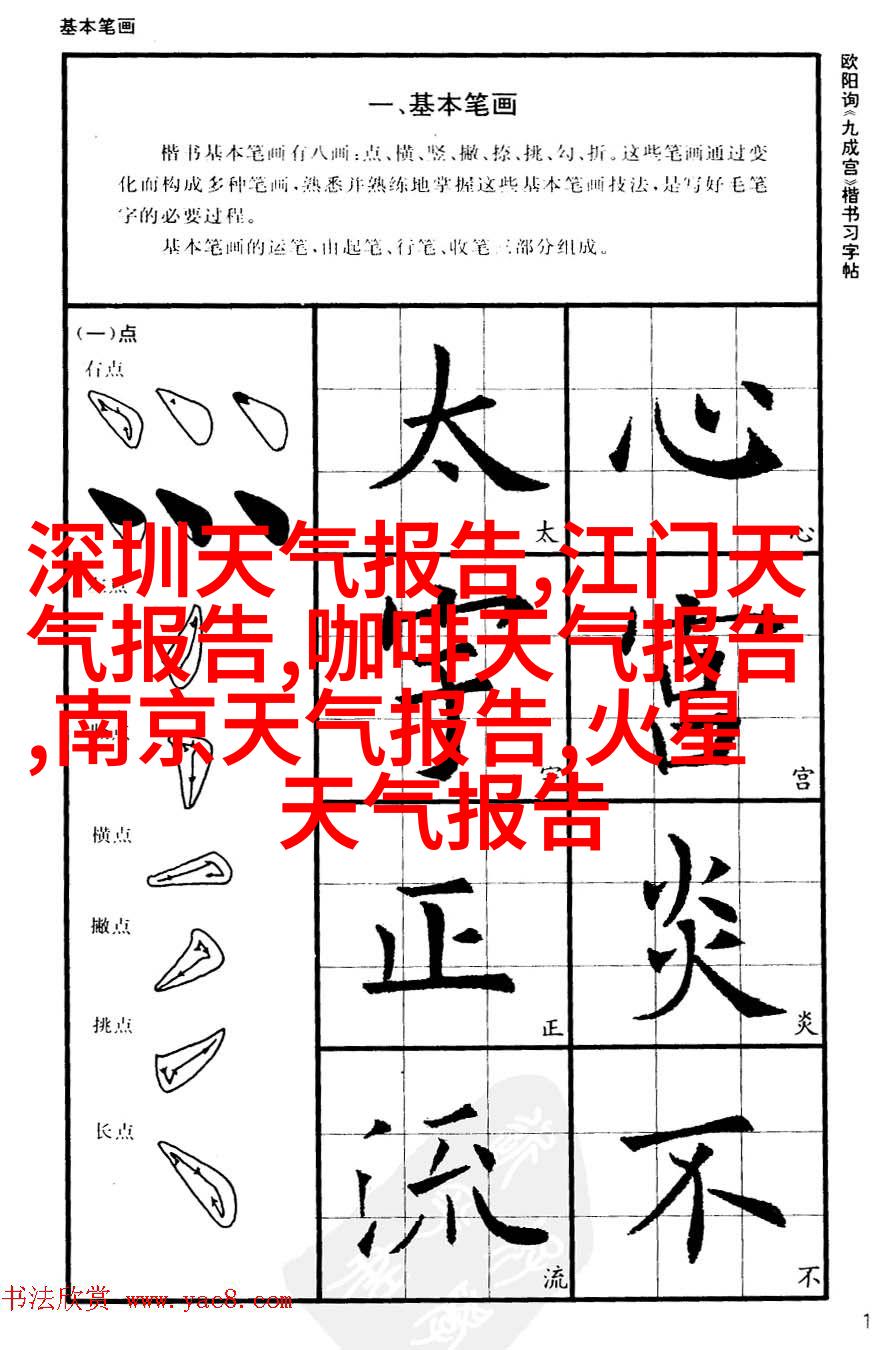 基本笔画
欧阳询《九成宫》楷书习字帖
一、基本笔画
楷书基本笔画有八画:点、横、竖、撇、捺、挑、勾、折。这些笔画通过变
化而构成多种笔画,熟悉并熟练地掌握这些基本笔画技法,是写好毛笔
字的必要过程。
基本笔画的运笔,由起笔、行笔、收笔三部分组成。
(一)点
右点
太
太
心
心
深圳天气报告,江门天
气报告,咖啡天气报告
,南京天气报告,火星
天气报告
宫
宫
横点
撇点
挑点
长点
正
正
炎
炎
流
流
不
不
书法欣赏 www.yac8.com
1